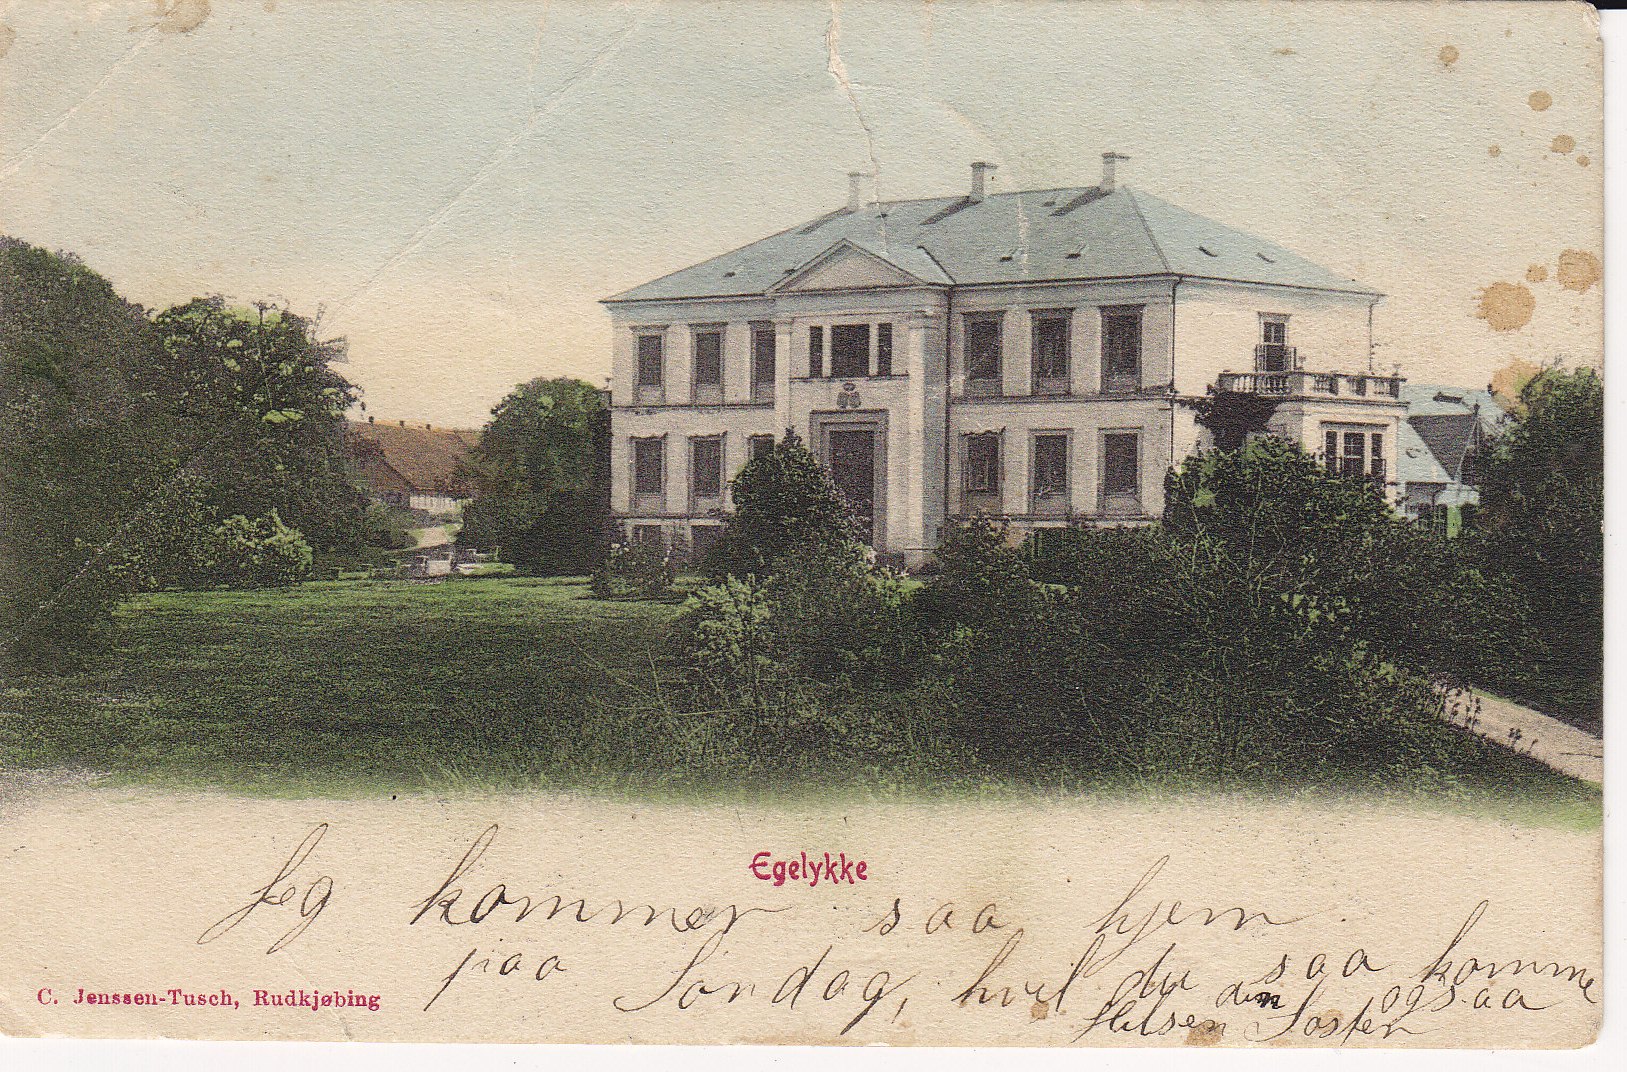 Egelykke
Jeg kommer saa hjem
paa Søndag, hvil du saa komme
ogsaa
C. Jenssen-Tusch, Rudkjøbing
Hilsen din Søster